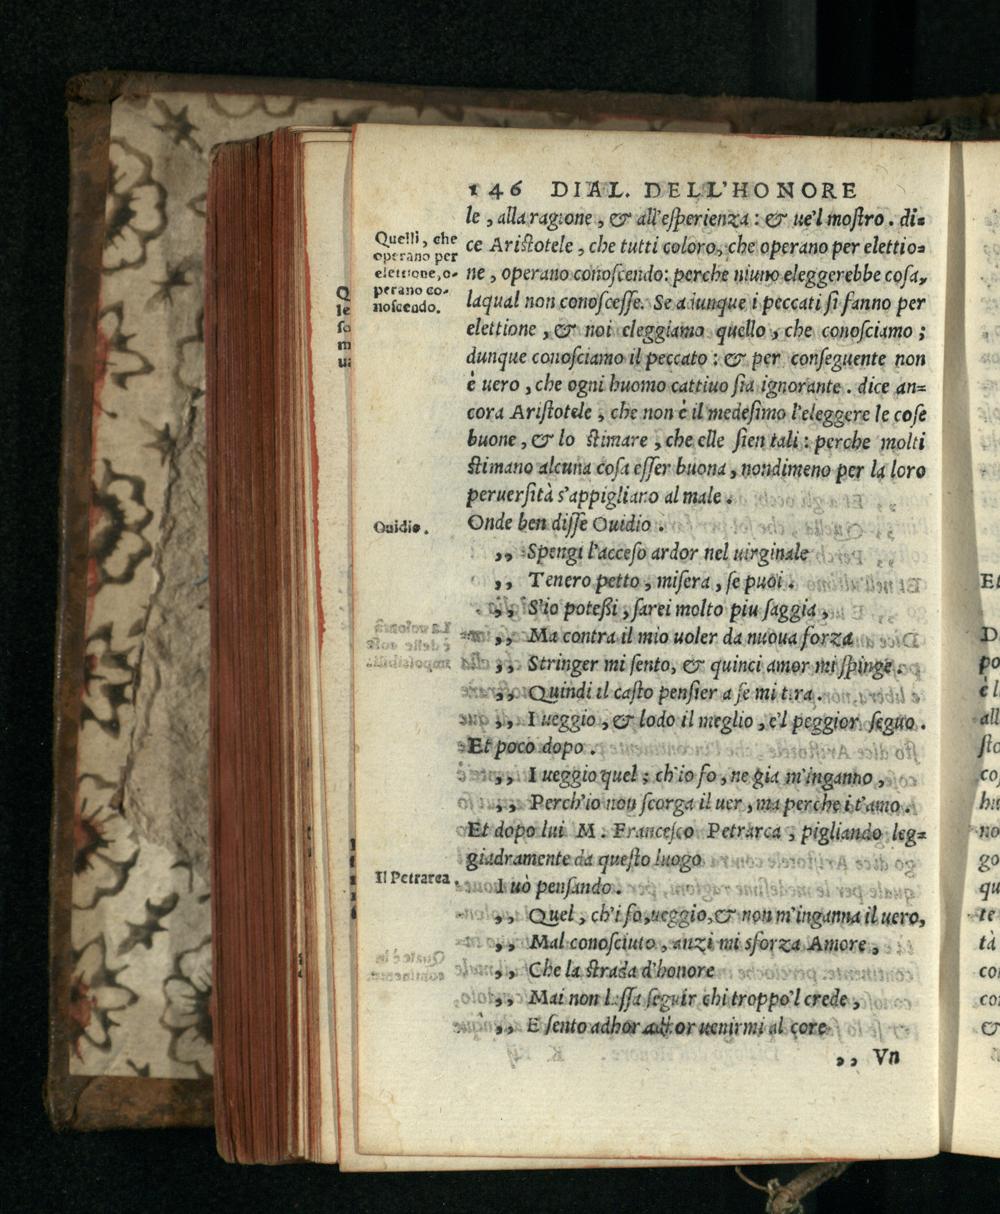 146 DIAL. DELL'HONORE
le, alla ragione, & all'eſperienza: & ue'l moſtro. di=
ce Ariſtotele, che tutti coloro, che operano per elettio=
ne, operano conoſcendo: perche niuno eleggerebbe coſa,
laqual non conoſceſſe. Se adunque i peccati ſi fanno per
elettione, & noi eleggiamo quello, che conoſciamo;
dunque conoſciamo il peccato: & per conſeguente non
è uero, che ogni huomo cattiuo ſia ignorante. dice an=
cora Ariſtotele, che non è il medeſimo l'eleggere le coſe
buone, & lo ſtimare, che elle ſien tali: perche molti
ſtimano alcuna coſa eſſer buona, nondimeno per la loro
peruerſità s'appigliano al male.
Onde ben diſſe Ouidio.
,, Spengi l'acceſo ardor nel uirginale
,, Tenero petto, miſera, ſe puoi.
,, S'io poteßi, ſarei molto piu ſaggia,
,, Ma contra il mio uoler da nuoua forza
,, Stringer mi ſento, & quinci amor mi ſpinge.
,, Quindi il caſto penſier a ſe mi tira.
,, I ueggio, & lodo il meglio, e'l peggior ſeguo.
Et poco dopo.
,, I ueggio quel; ch'io fo, ne gia m'inganno,
,, Perch'io non ſcorga il uer, ma perche i t'amo.
Et dopo lui M. Franceſco Petrarca, pigliando leg=
giadramente da queſto luogo
I uò penſando.
,, Quel, ch'i fo, ueggio, & non m'inganna il uero,
,, Mal conoſciuto, anzi mi sforza Amore,
,, Che la ſtrada d'honore
,, Mai non laſſa ſeguir chi troppo'l crede,
,, E ſento adhor adhor uenirmi al core
,, Vn
Quelli, che
operano per
elettione, o-
perano co-
noſcendo.
Ouidio.
Il Petrarca.